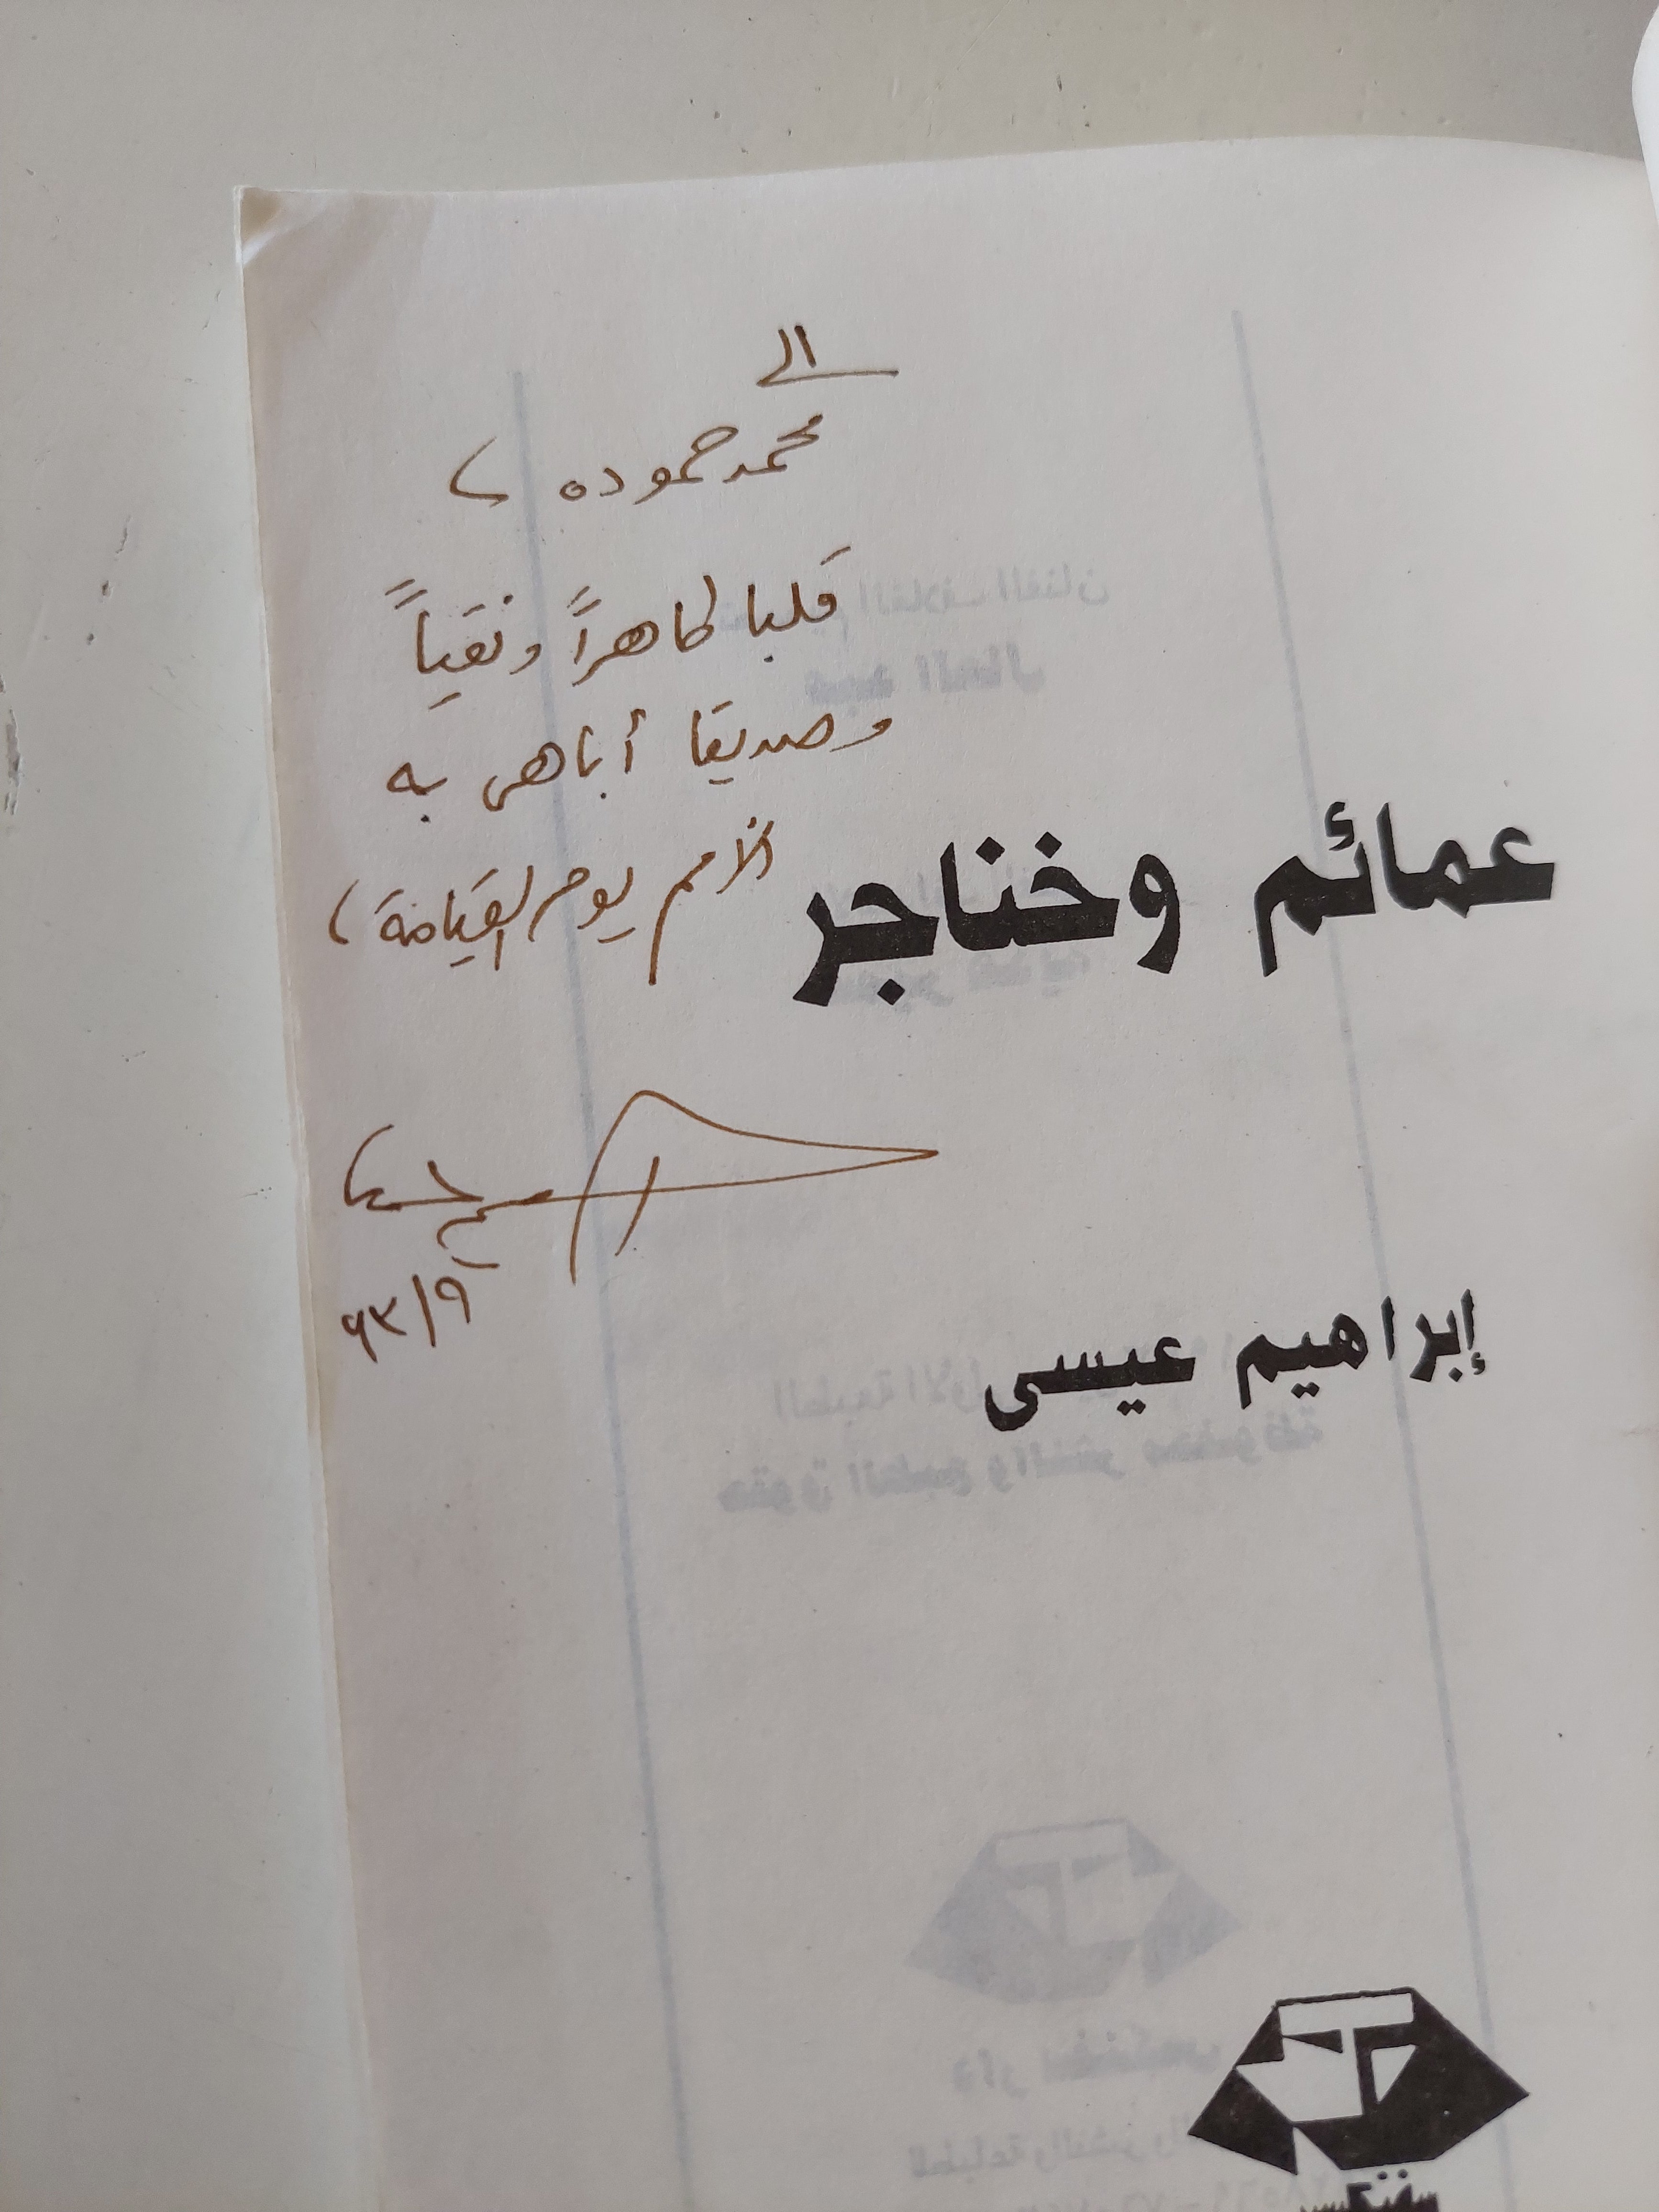 الى
محمد حموده
قلبا طاهراً ونقياً
وصديقا أباهى به
الأمم يوم القيامة
عمائم وخناجر
٩٣/٩
إبراهيم عيسى